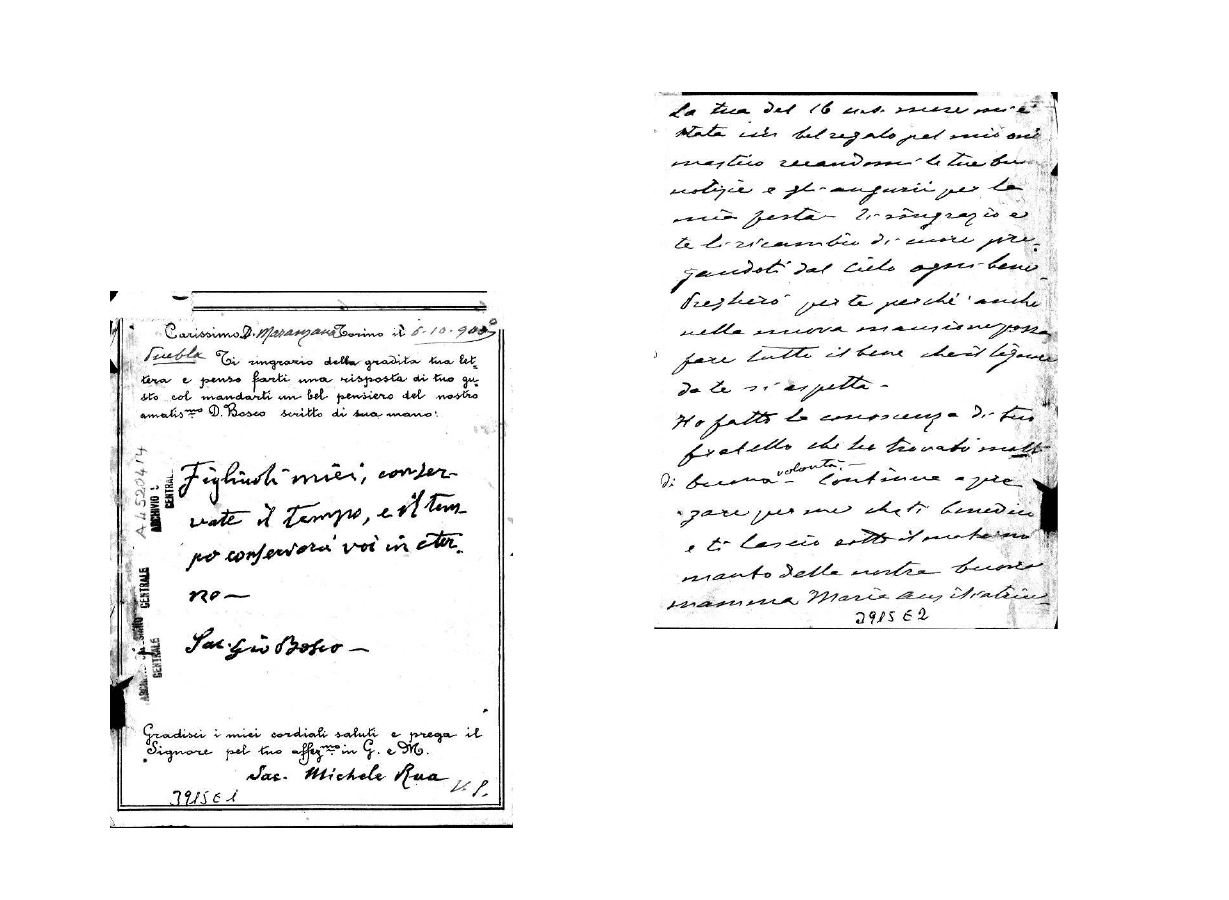 Carissimo D. Maranzana Torino il 6-10-900
Puebla Ti ringrazio della gradita tua let-
tera e penso farti una risposta di tuo gu-
sto col mandarti un bel pensiero del nostro
amatis.mo D. Bosco scritto di sua mano:
Figliuoli miei, conser-
vate il tempo, e il tem-
po conserverà voi in eter-
no —
Sac. Gio Bosco —
Gradisci i miei cordiali saluti e prega il
Signore pel tuo affez.mo in G. e M.
Sac. Michele Rua
V. S.
3915 E 1
A4520414
ARCHIVIO
CENTRALE
CENTRALE
CENTRALE
La tua del 16 u.s. mese mi è
stata un bel regalo pel mio ono
mastico recandomi le tue buone
notizie e gli augurii per la
mia festa. Ti ringrazio e
te li ricambio di cuore pre-
gandoti dal Cielo ogni bene.
Pregherò per te perchè anche
nella nuova mansione possa
fare tutto il bene che il Signore
da te si aspetta -
Ho fatto la conoscenza di tuo
fratello che ho trovato molto
di buona volontà - Continua a pre
gare per me che ti benedico
e ti lascio sotto il materno
manto della nostra buona
mamma Maria Ausiliatrice
3915 E 2